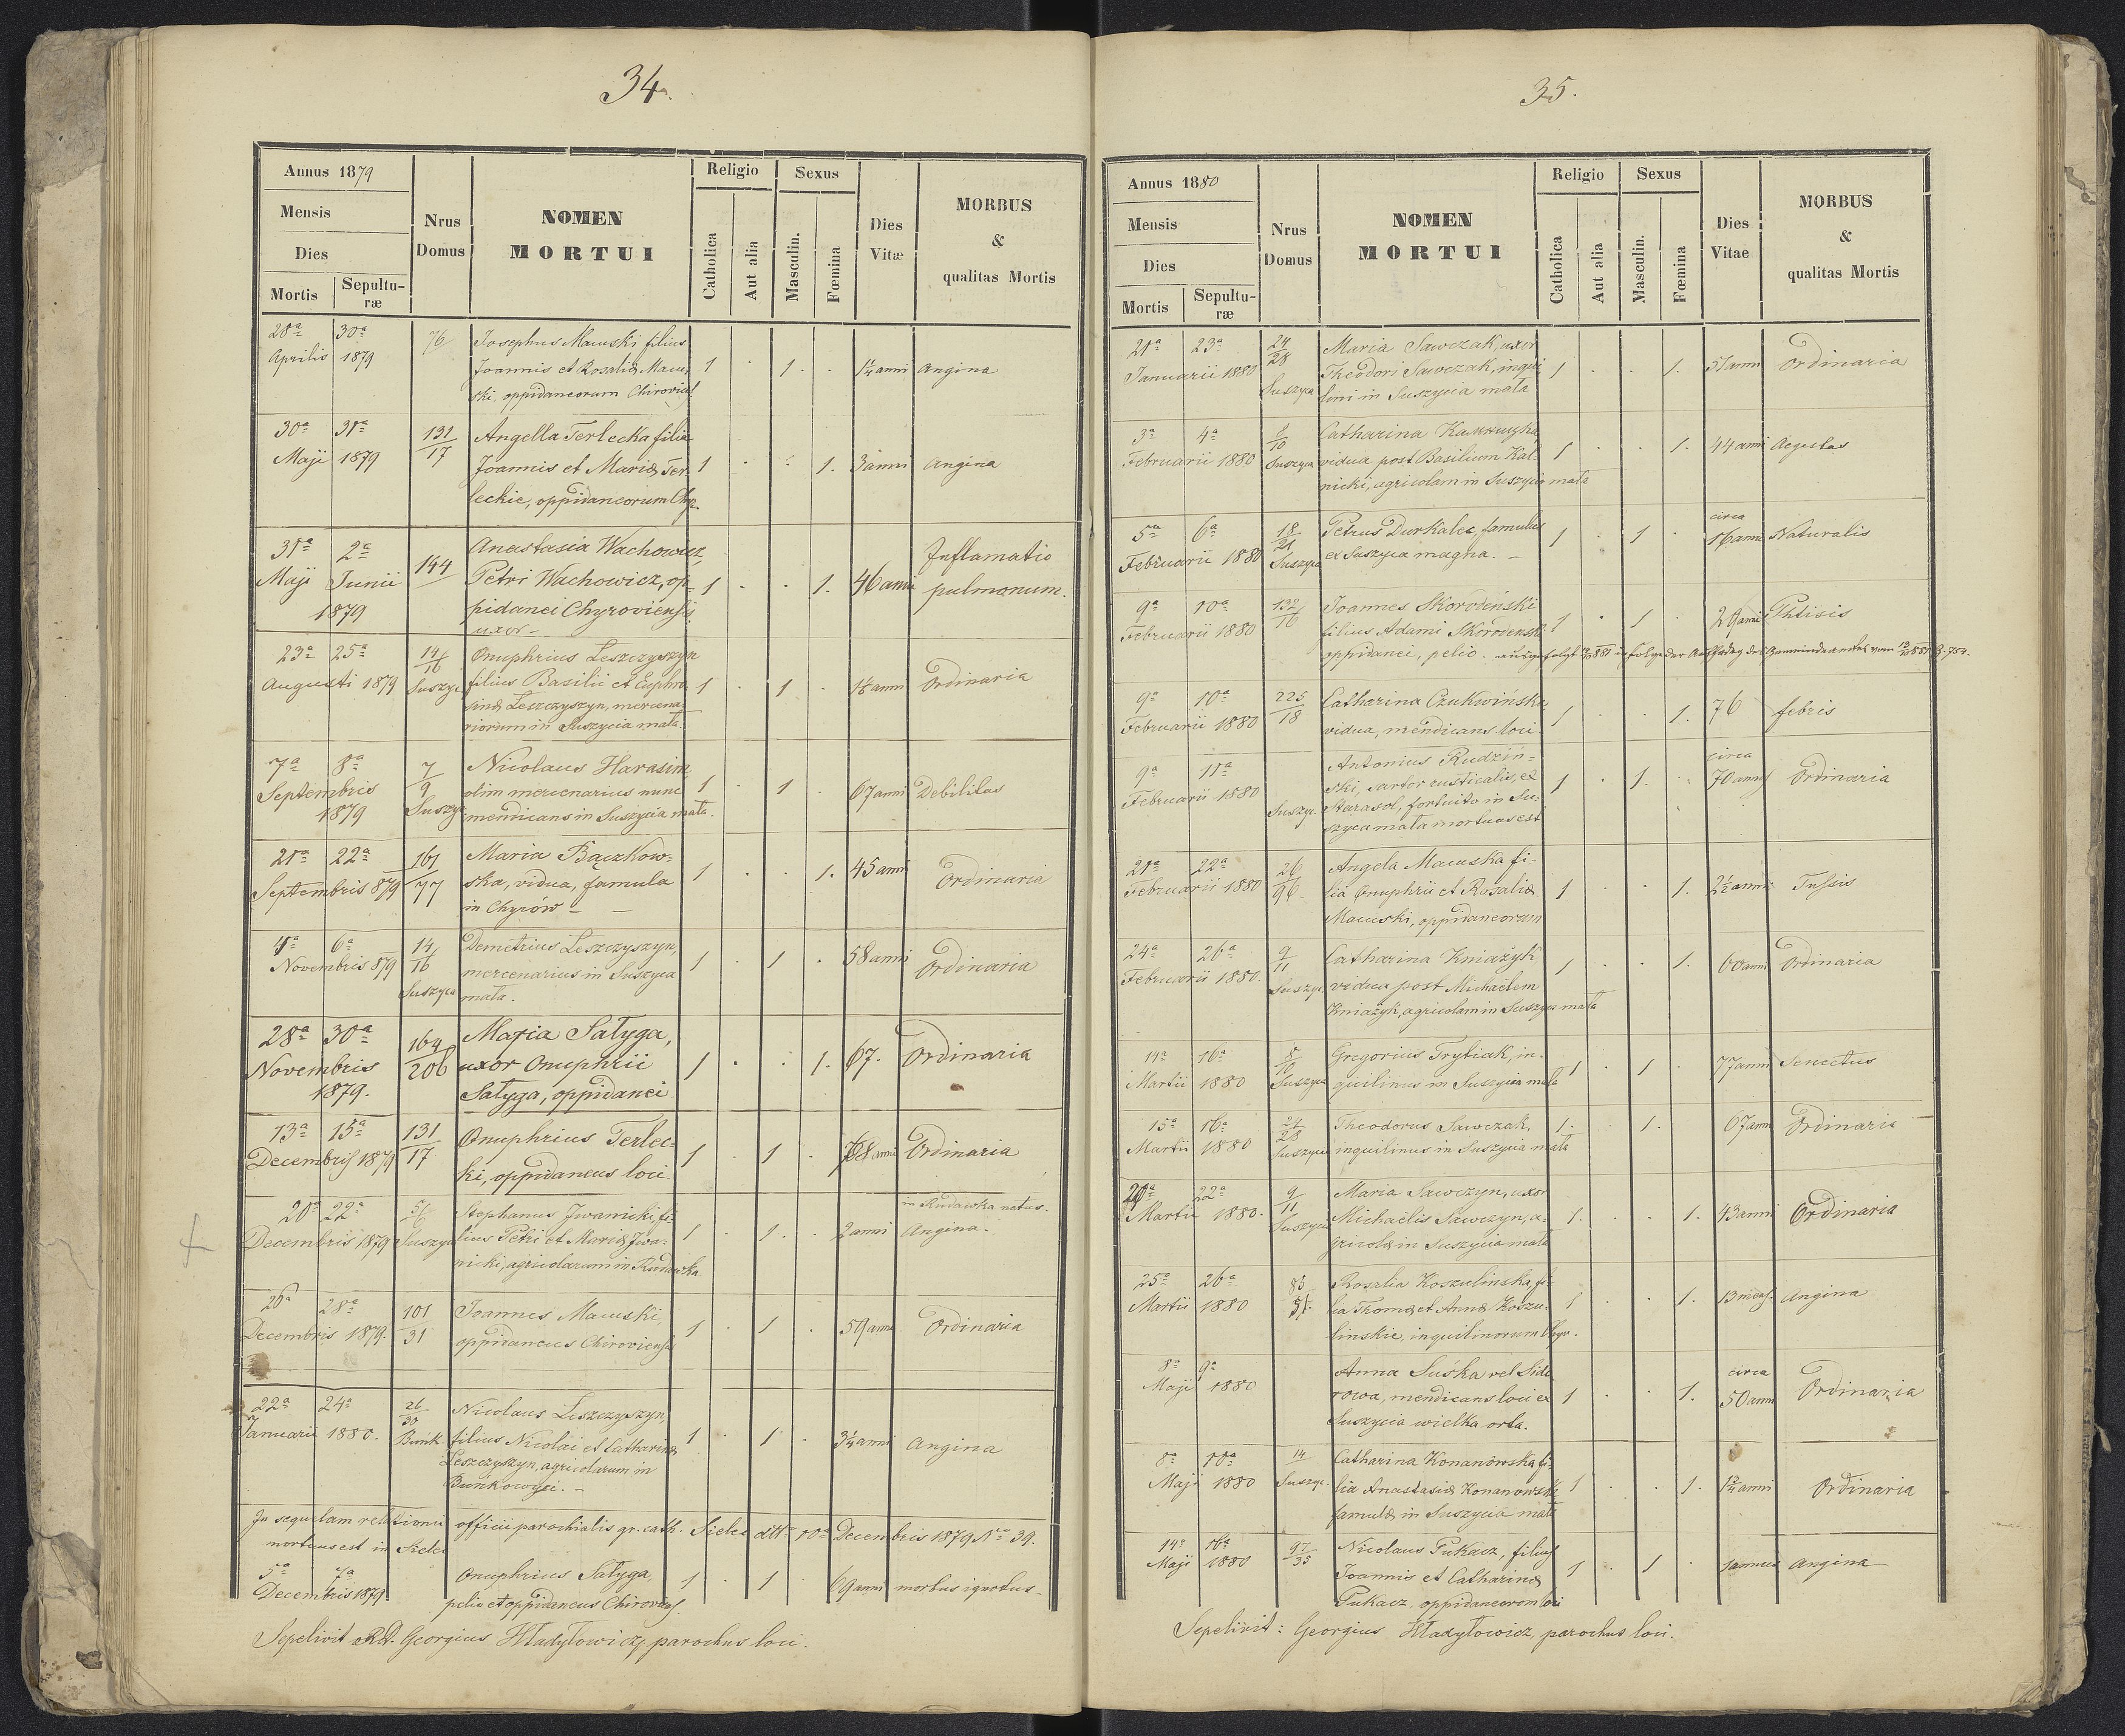 34.
Annus 1879
Mensis
Dies
Mortis
Sepultu-
ræ
Nrus
Domus
NOMEN
MORTUI
Religio
Catholica
Aut alia
Sexus
Masculin.
Fœmina
Dies
Vitæ
MORBUS
&
qualitas Mortis
28ª 30ª 76 Josephus Macuski filius
Aprilis 1879 Joannis et Rosaliæ Macu- 1 · 1 · 1¼ anni Angina
ski, oppidaneorum
30ª 31ª 131/17 Angella Terlecka filia
Maji 1879 Joannis et Mariæ Ter- 1 · · 1. 3 anni Angina
leckie, oppidaneorum Chyr.
31ª 2ª 144 Anastasia Wachowicz, Inflamatio
Maji Junii Petri Wachowicz, op- 1 · · 1. 46 anni pulmonum.
1879 pidanei Chyroviensis
uxor –
23ª 25ª 14/16 Onuphrius Leszczyszyn
Augusti 1879 Suszyc. filius Basilii et Euphro- 1 · 1 · anni Ordinaria
sinæ Leszczyszyn, mercena-
riorum in Suszycia mała.
7ª 8ª 7/9 Nicolaus Harasim
Septembris Suszyc. olim mercenarius nunc 1 · 1 · 67 anni Debilitas
1879 mendicans in Suszycia mała.
21ª 22ª 161/77 Maria Bączkow-
Septembris 879 ska, vidua, famula 1 · · 1. 45 anni Ordinaria
in Chyrów –
4ª 6ª 14/16 Demetrius Leszczyszyn,
Novembris 879 mercenarius in Suszyca 1 · 1 · 58 anni Ordinaria
Suszyca mała.
28ª 30ª 164/206 Maria Sałyga,
Novembris uxor Onuphrii 1 · · 1. 67. Ordinaria
1879. Sałyga, oppidanei
13ª 15ª 131/17 Onuphrius Terlec-
Decembris 1879 ki, oppidaneus loci. 1 · 1 · 68 anni Ordinaria
20ª 22ª 5/6 Stephanus Jwanicki fi- in Rudawka natus.
Decembris 1879 Suszyca lius Petri et Mariæ Jwa- 1 · 1 · 2 anni Angina.
nicki, agricolarum in Rudawka
26ª 28ª 101/31 Joannes Macuski,
Decembris 1879. oppidaneus Chiroviensis 1 · 1 · 59 anni Ordinaria
22ª 24ª 26/30 Nicolaus Leszczyszyn,
Januarii 1880. Bunk filius Nicolai et Catharinæ 1 · 1 · 3¼ anni Angina
Leszczyszyn, agricolarum in
Bunkowyci. –
In sequelam relationis officii parochialis gr. cath. Sielec 10ª Decembris 1879 Nro 39.
mortuus est in Sielec
5ª 7ª Onuphrius Sałyga,
Decembris 1879 pelio et oppidaneus 1 · 1 · 69 anni morbus ignotus –
Sepelivit Georgius Hładyłowicz, parochus loci.
35.
Annus 1880
Mensis
Dies
Mortis
Sepultu-
ræ
Nrus
Domus
NOMEN
MORTUI
Religio
Catholica
Aut alia
Sexus
Masculin.
Fœmina
Dies
Vitae
MORBUS
&
qualitas Mortis
21ª 23ª 24/28 Maria Sawczak, uxor
Januarii 1880 Theodori Sawczak, inqui- 1 · · 1. 57 anni Ordinaria
Suszyca lini in Suszycia mała
3ª 4ª 8/10 Catharina
Februarii 1880 Suszyca vidua post Basilium Kal- 1 · · 1. 44 anni Aegestas
nicki, agricolam in Suszycia mała
5ª 6ª 18/21 Petrus Durkalec, famulus circa
Februarii 1880 Suszyca ex Suszyca magna. – 1 · 1 · 16 anni Naturalis
9ª 10ª 132/16 Joannes Skorodeński
Februarii 1880 filius Adami Skorodenski 1 · 1 · 29 anni Phtisis
oppidanei, pelio. ausgefolgt in folge der des Gemeindeamtes vom
9ª 10ª 225/18 Catharina Czukwińska
Februarii 1880 vidua, mendicans loci 1 · · 1. 76 febris
9ª 11ª Antonius Rudziń- circa
Februarii 1880 ski, sartor rusticalis, ex 1 · 1. · 70 annos Ordinaria
Suszyc. Starasol, fortuito in Su-
szyca mała mortuus est
21ª 22ª 26/96 Angela Macuska fi-
Februarii 1880 lia Onuphrii et Rosaliæ 1 · · 1. 2½ anni Tussis
Macuski, oppidaneorum
24ª 26ª 9/11 Catharina Kniażyk
Februarii 1880. Suszyc. vidua post Michaelem 1 · · 1. 60 anni Ordinaria
Kniażyk, agricolam in Suszyca mała
14ª 16ª 8/10 Gregorius Trytiak, in-
Martii 1880 Suszyca quilinus in Suszycia mała 1 · 1 · 77 anni Senectus
15ª 16ª 24/28 Theodorus Sawczak, 1. · 1. 67 anni Ordinaria
Martii 1880 Suszyca inquilinus in Suszycia mała
20ª 22ª 9/11 Maria Sawczyn, uxor
Martii 1880. Suszyca Michaelis Sawczyn, a- 1. · · 1. 43 anni Ordinaria
gricolæ in Suszycia mała
25ª 26ª 83/51 Rosalia Koszulinska, fi-
Martii 1880 lia Thomæ et Annæ Koszu- 1 · · 1. 13 Angina
linskie, inquilinorum Chyr.
8ª 9ª Anna Suska vel Sido- circa
Maji 1880 rowa, mendicans loci ex 1 · · 1. 50 anni Ordinaria
Suszycia wielka orta.
8ª 10ª 14 Catharina Konanowska fi-
Maji 1880 Suszyc. lia Anastasiæ Konanowska 1 · · 1. anni Ordinaria
famulæ in Suszycia mała
14ª 16ª 97/35 Nicolaus Pukacz, filius
Maji 1880 Joannis et Catharinæ 1 · 1 · 1 annus Angina
Pukacz, oppidaneorum loci
Sepelivit: Georgius Hładyłowicz, parochus loci.